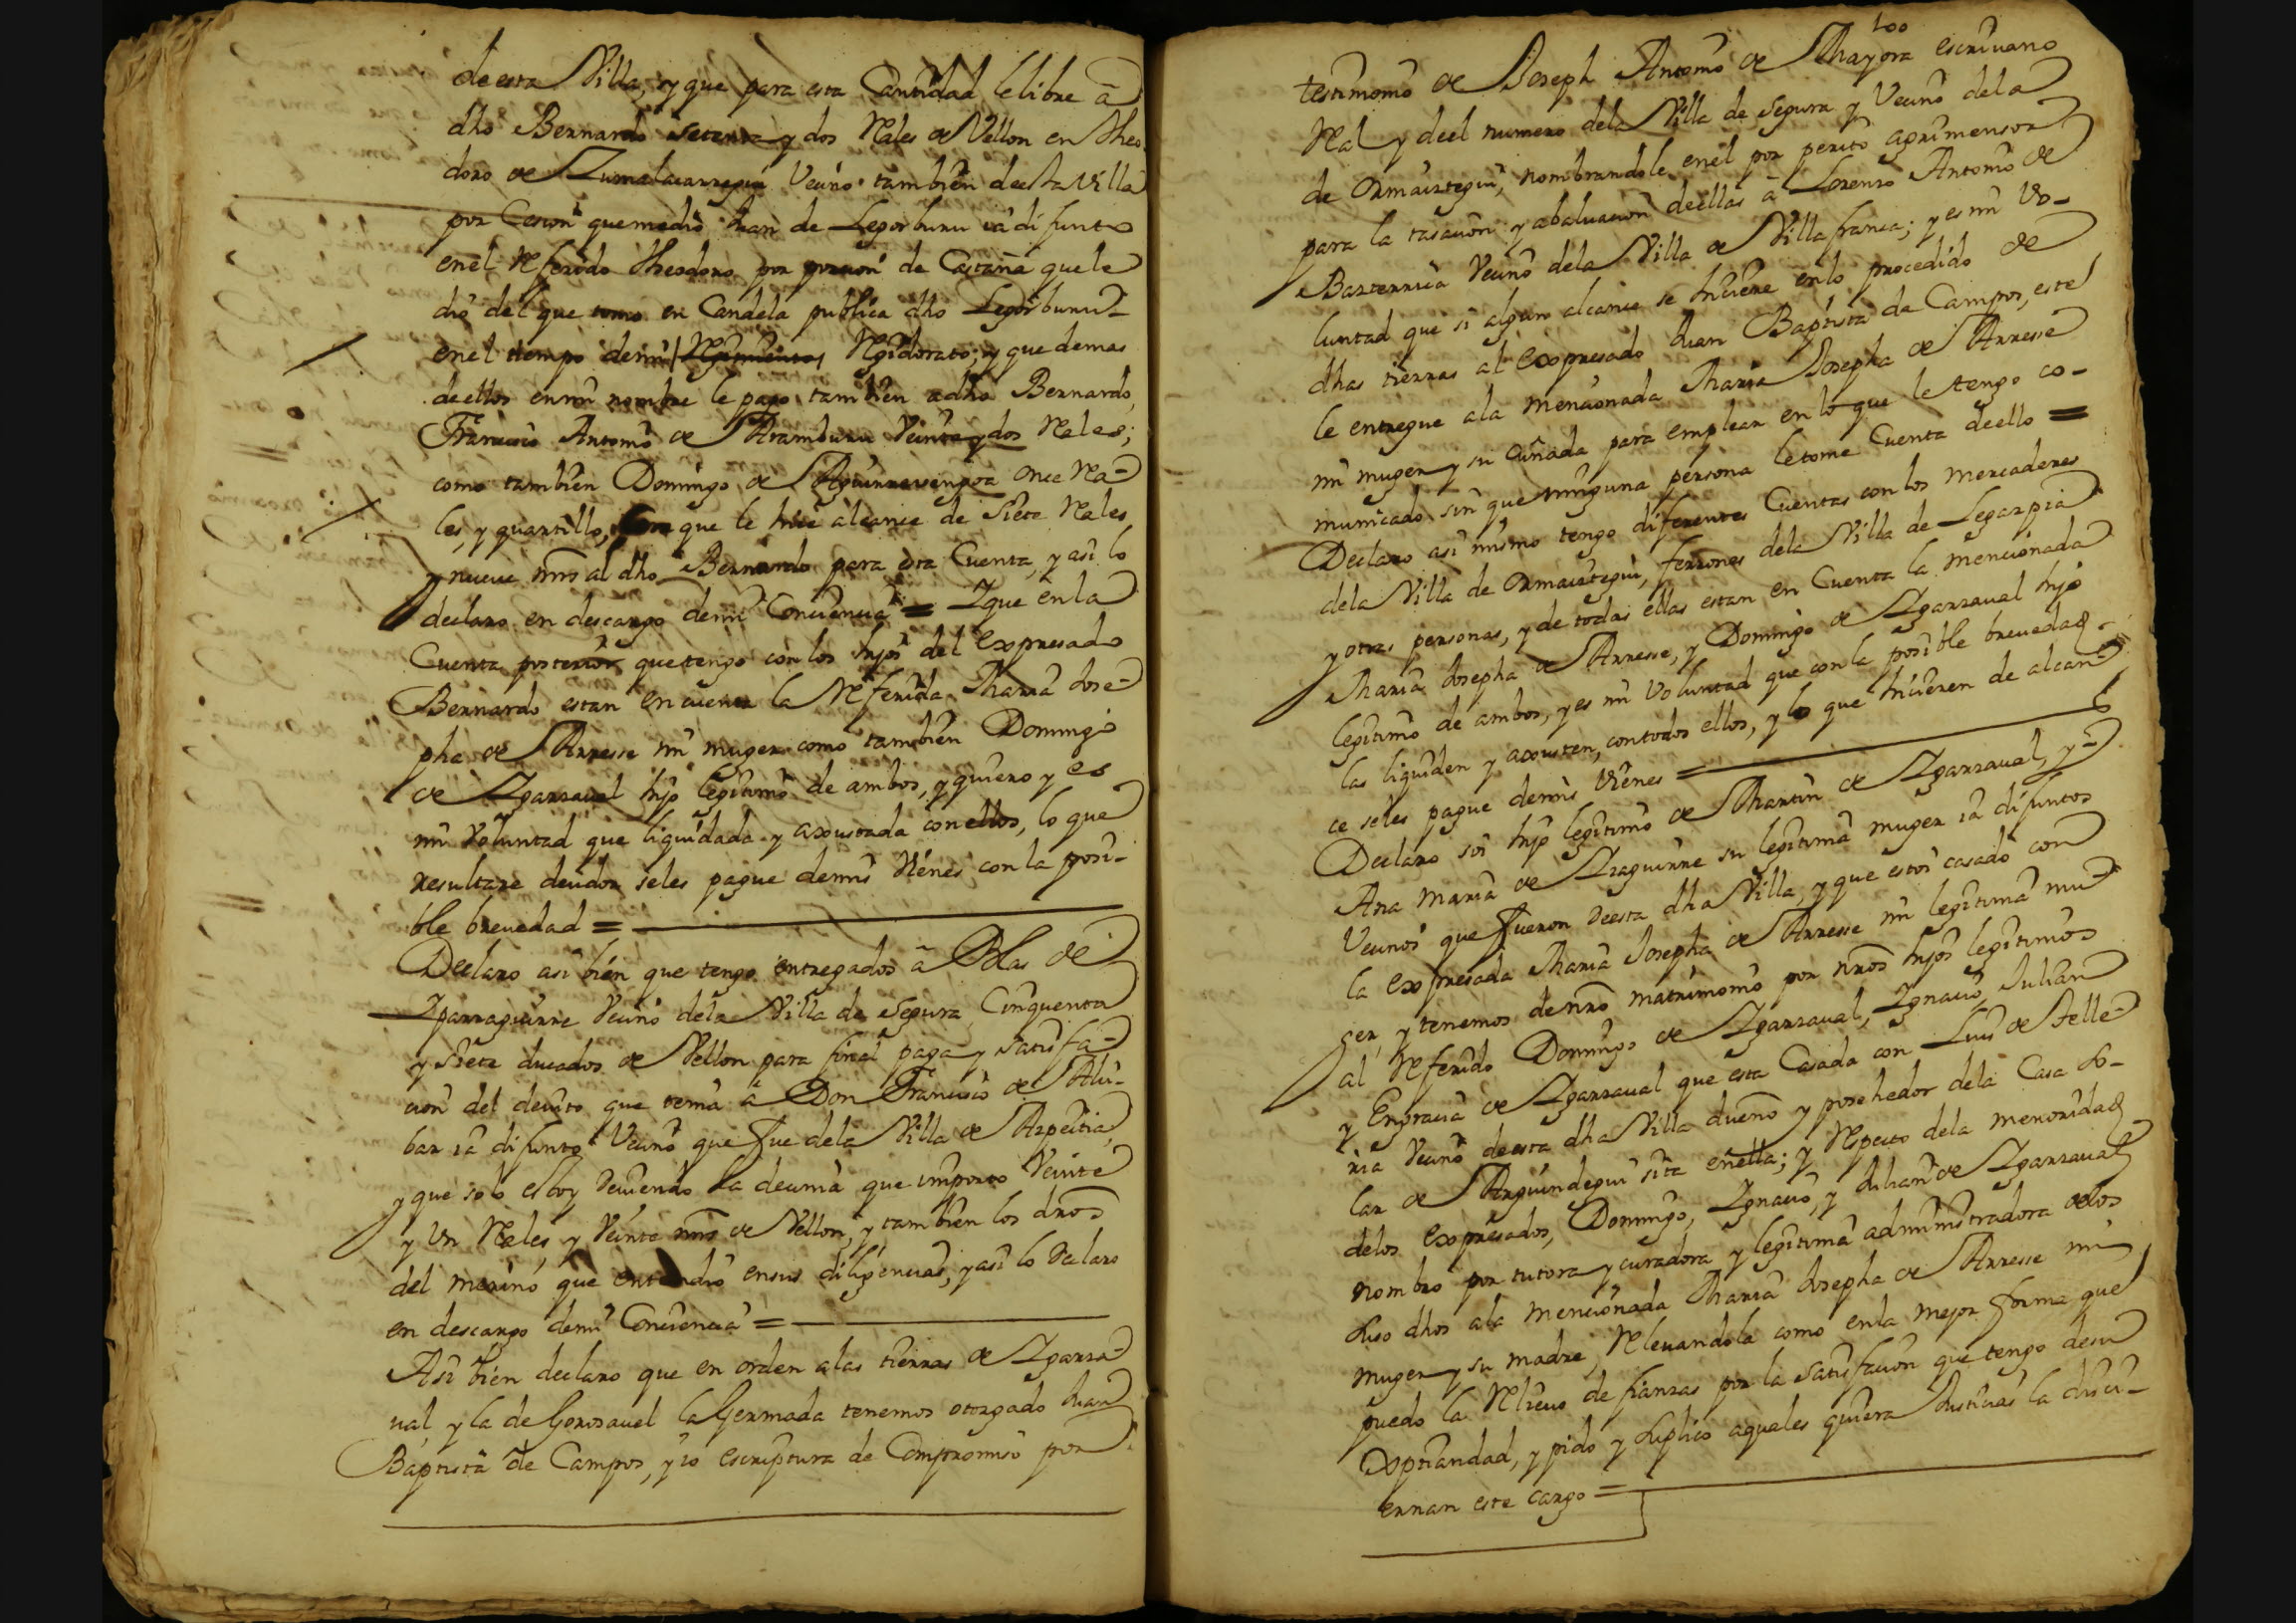 de esta Villa, y que para esta Cantidad le libre â
dho Bernardo setenta y dos Rales de Vellon en Theo-
doro de Zumalacarregui Vecino tambien de esta Villa
por Cesion que me dio Juan de Legorburu iâ difunto
en el Referido Theodoro por porcion de Castaña que le
dio del que tomo en Candela publica dho Legorburu
en el tiempo de mi Regidorato; y que demas
de ellos en mi nombre le pago tambien a dho Bernardo,
Francisco Antonio de Aramburu Veinte y dos Rales;
como tambien Domingo de Aguirrezengoa once Ra-
les, y quartillo, que le hice alcance de Siete Rales
y nueve mrs al dho Bernardo para esta Cuenta, y asi lo
declaro en descargo de mi Conciencia = Y que en la
Cuenta posterior que tengo con los hijos del expresado
Bernardo estan en cuenta la Referida Maria Jose-
pha de Arresse mi muger como tambien Domingo
de Ygarzaval hijo legitimo de ambos, y quiero y es
mi Voluntad que liquidada y axustada con ellos, lo que
resultare deudor se les pague de mis Vienes con la posi-
ble brevedad =
Declaro asi bien que tengo entregados â Blas de
Yparraguirre Vecino de la Villa de Segura Cinquenta
y siete ducados de Vellon para final paga y satisfa-
cion del devito que tenia â Don Francisco de Alvi-
bar iâ difunto Vecino que fue de la Villa de Azpeitia,
y que solo estoy deviendo la decima que importo Veinte
y Un Rales y Veinte mrs de Vellon, y tambien los dros
del merino que entendio en sus diligencias, y asi lo declaro
en descargo de mi Conciencia =
Asi bien declaro que en orden a las tierras de Ygarza-
val, y la de Gorosavel la Germada tenemos otorgado Juan
Baptista de Campos, y io escriptura de Compromiso por
100
testimonio de Joseph Antonio de Mayora escrivano
Ral y del numero de la Villa de Segura y Vecino de la
de Ormaiztegui, nombrandole en el por perito agrimensor
para la tasacion y abaluacion de ellas â Lorenzo Antonio de
Barrenzia Vecino de la Villa de Villafranca; y es mi Vo-
luntad que si algun alcance se hiciere en lo procedido de
dhas tierras al expresado Juan Baptista de Campos, este
le entregue a la mencionada Maria Josepha de Arresse
mi muger y su Cuñada para emplear en lo que le tengo co-
municado sin que ninguna persona le tome Cuenta de ello =
Declaro asi mismo tengo diferentes Cuentas con los mercaderes
de la Villa de Ormaiztegui, ferrones de la Villa de Legazpia
y otras personas, y de todas ellas estan en Cuenta la mencionada
Maria Josepha de Arresse, y Domingo de Ygarzaval hijo
legitimo de ambos, y es mi Voluntad que con la posible brevedad
las liquiden y axusten, con todos ellos, y lo que hicieren de alcan-
ce se les pague de mis Vienes =
Declaro soi hijo legitimo de Martin de Ygarzaval, y
Ana Maria de Yraguirre su legitima muger iâ difuntos
Vecinos que fueron de esta dha Villa, y que estoi casado con
la expresada Maria Josepha de Arresse mi legitima mu-
ger, y tenemos de nro matrimonio por nros hijos legitimos
al Referido Domingo de Ygarzaval, Ygnacio, Julian
y Engracia de Ygarzaval que esta Casada con Luis de Telle-
ria Vecino de esta dha Villa dueño y posehedor de la Casa So-
lar de Arguindegui sita en ella; y Respecto de la menoridad
de los expresados, Domingo, Ygnacio, y Julian de Ygarzaval
nombro por tutora y curadora y legitima administradora de los
suso dhos a la mencionada Maria Josepha de Arresse mi
muger y su madre, Relevandola como en la mejor forma que
puedo la Relievo de fianzas por la Satisfacion que tengo de su
Xptiandad, y pido y suplico a quales quiera Justicias la disci-
ernan este cargo =